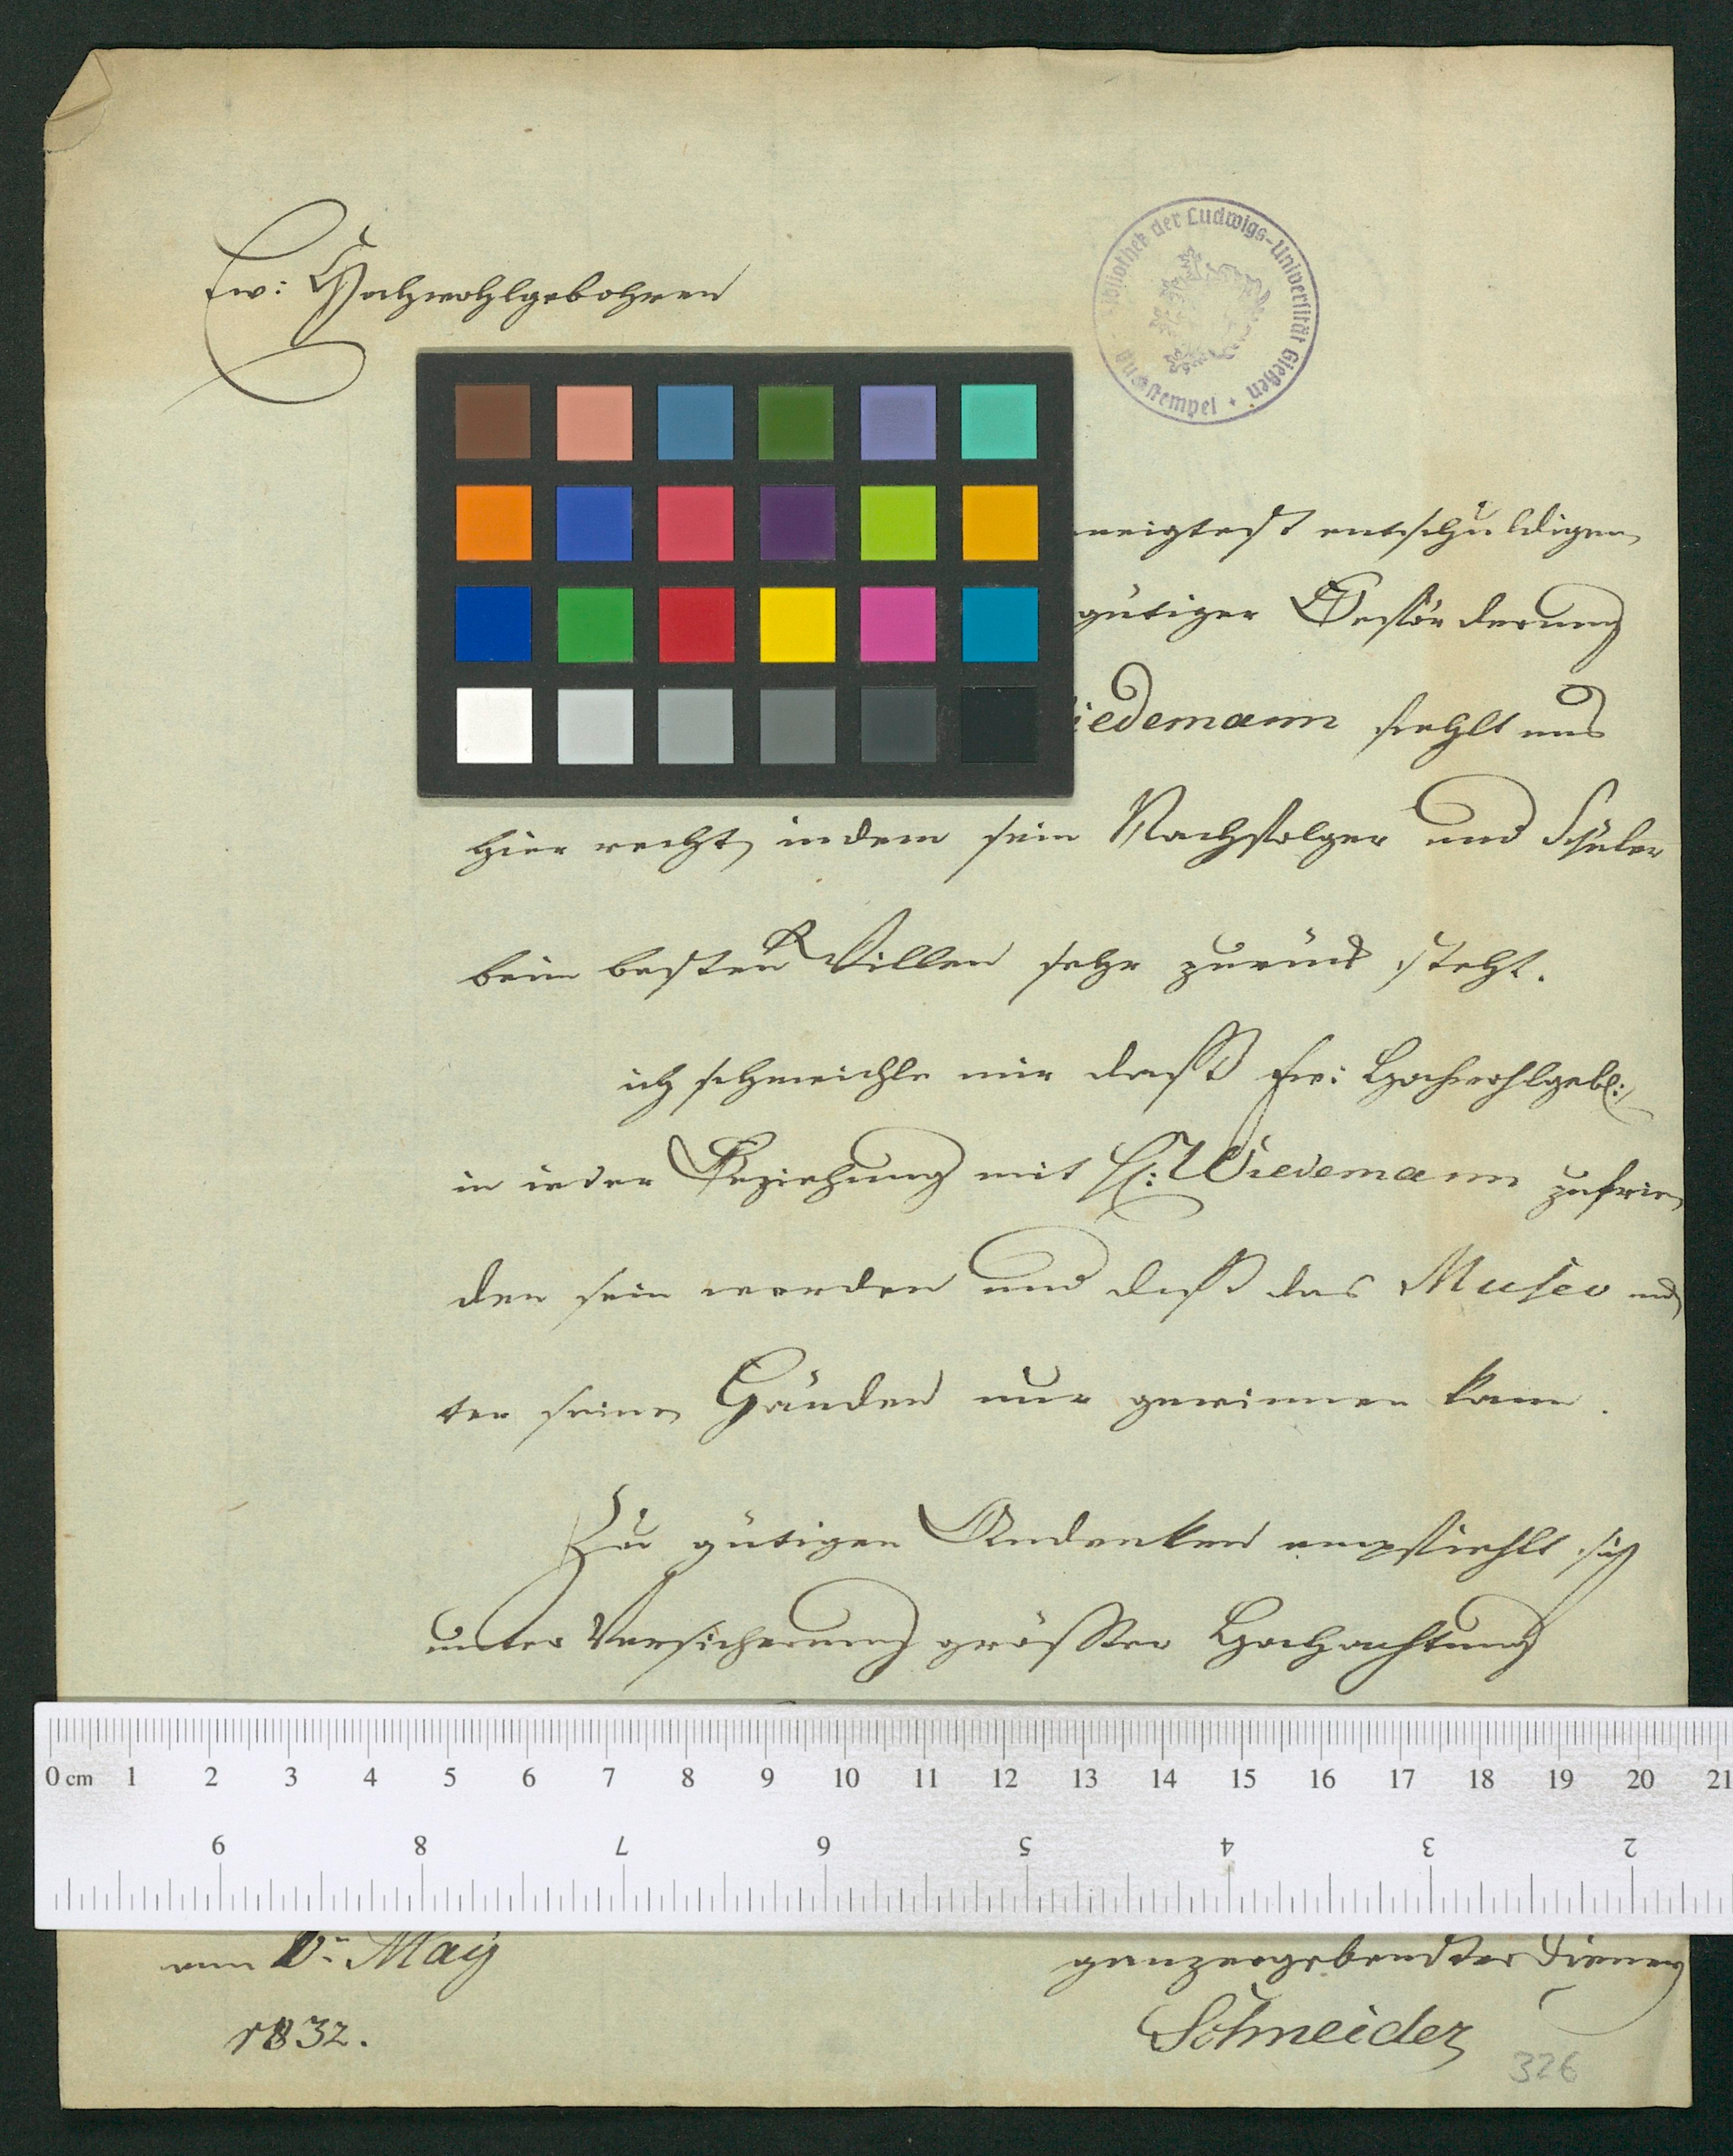 Ew: Hochwohlgebohren
Bibliothek der Ludwigs-Universität Gießen
neigtest entschuldigen
gütiger Beförderung
iedemann fehlt uns
hier recht, indem sein Nachfolger und Schüler
beim besten Willen sehr zurück steht.
ich schmeichle mir daß Ew: Hochwohlgeb:
in ieder Beziehung mit H: Wiedemann zufrie
den sein werden und daß das Museo un
ter seinen Händen nur gewinnen kann.
Zu gütigen Andenken empfiehlt sich
unter Versicherung größter Hochachtung
0 cm 1 2 3 4 5 6 7 8 9 10 11 12 13 14 15 16 17 18 19 20 21
9 8 7 6 5 4 3 2
May
ganzergebendster Diener
1832.
Schneider
326